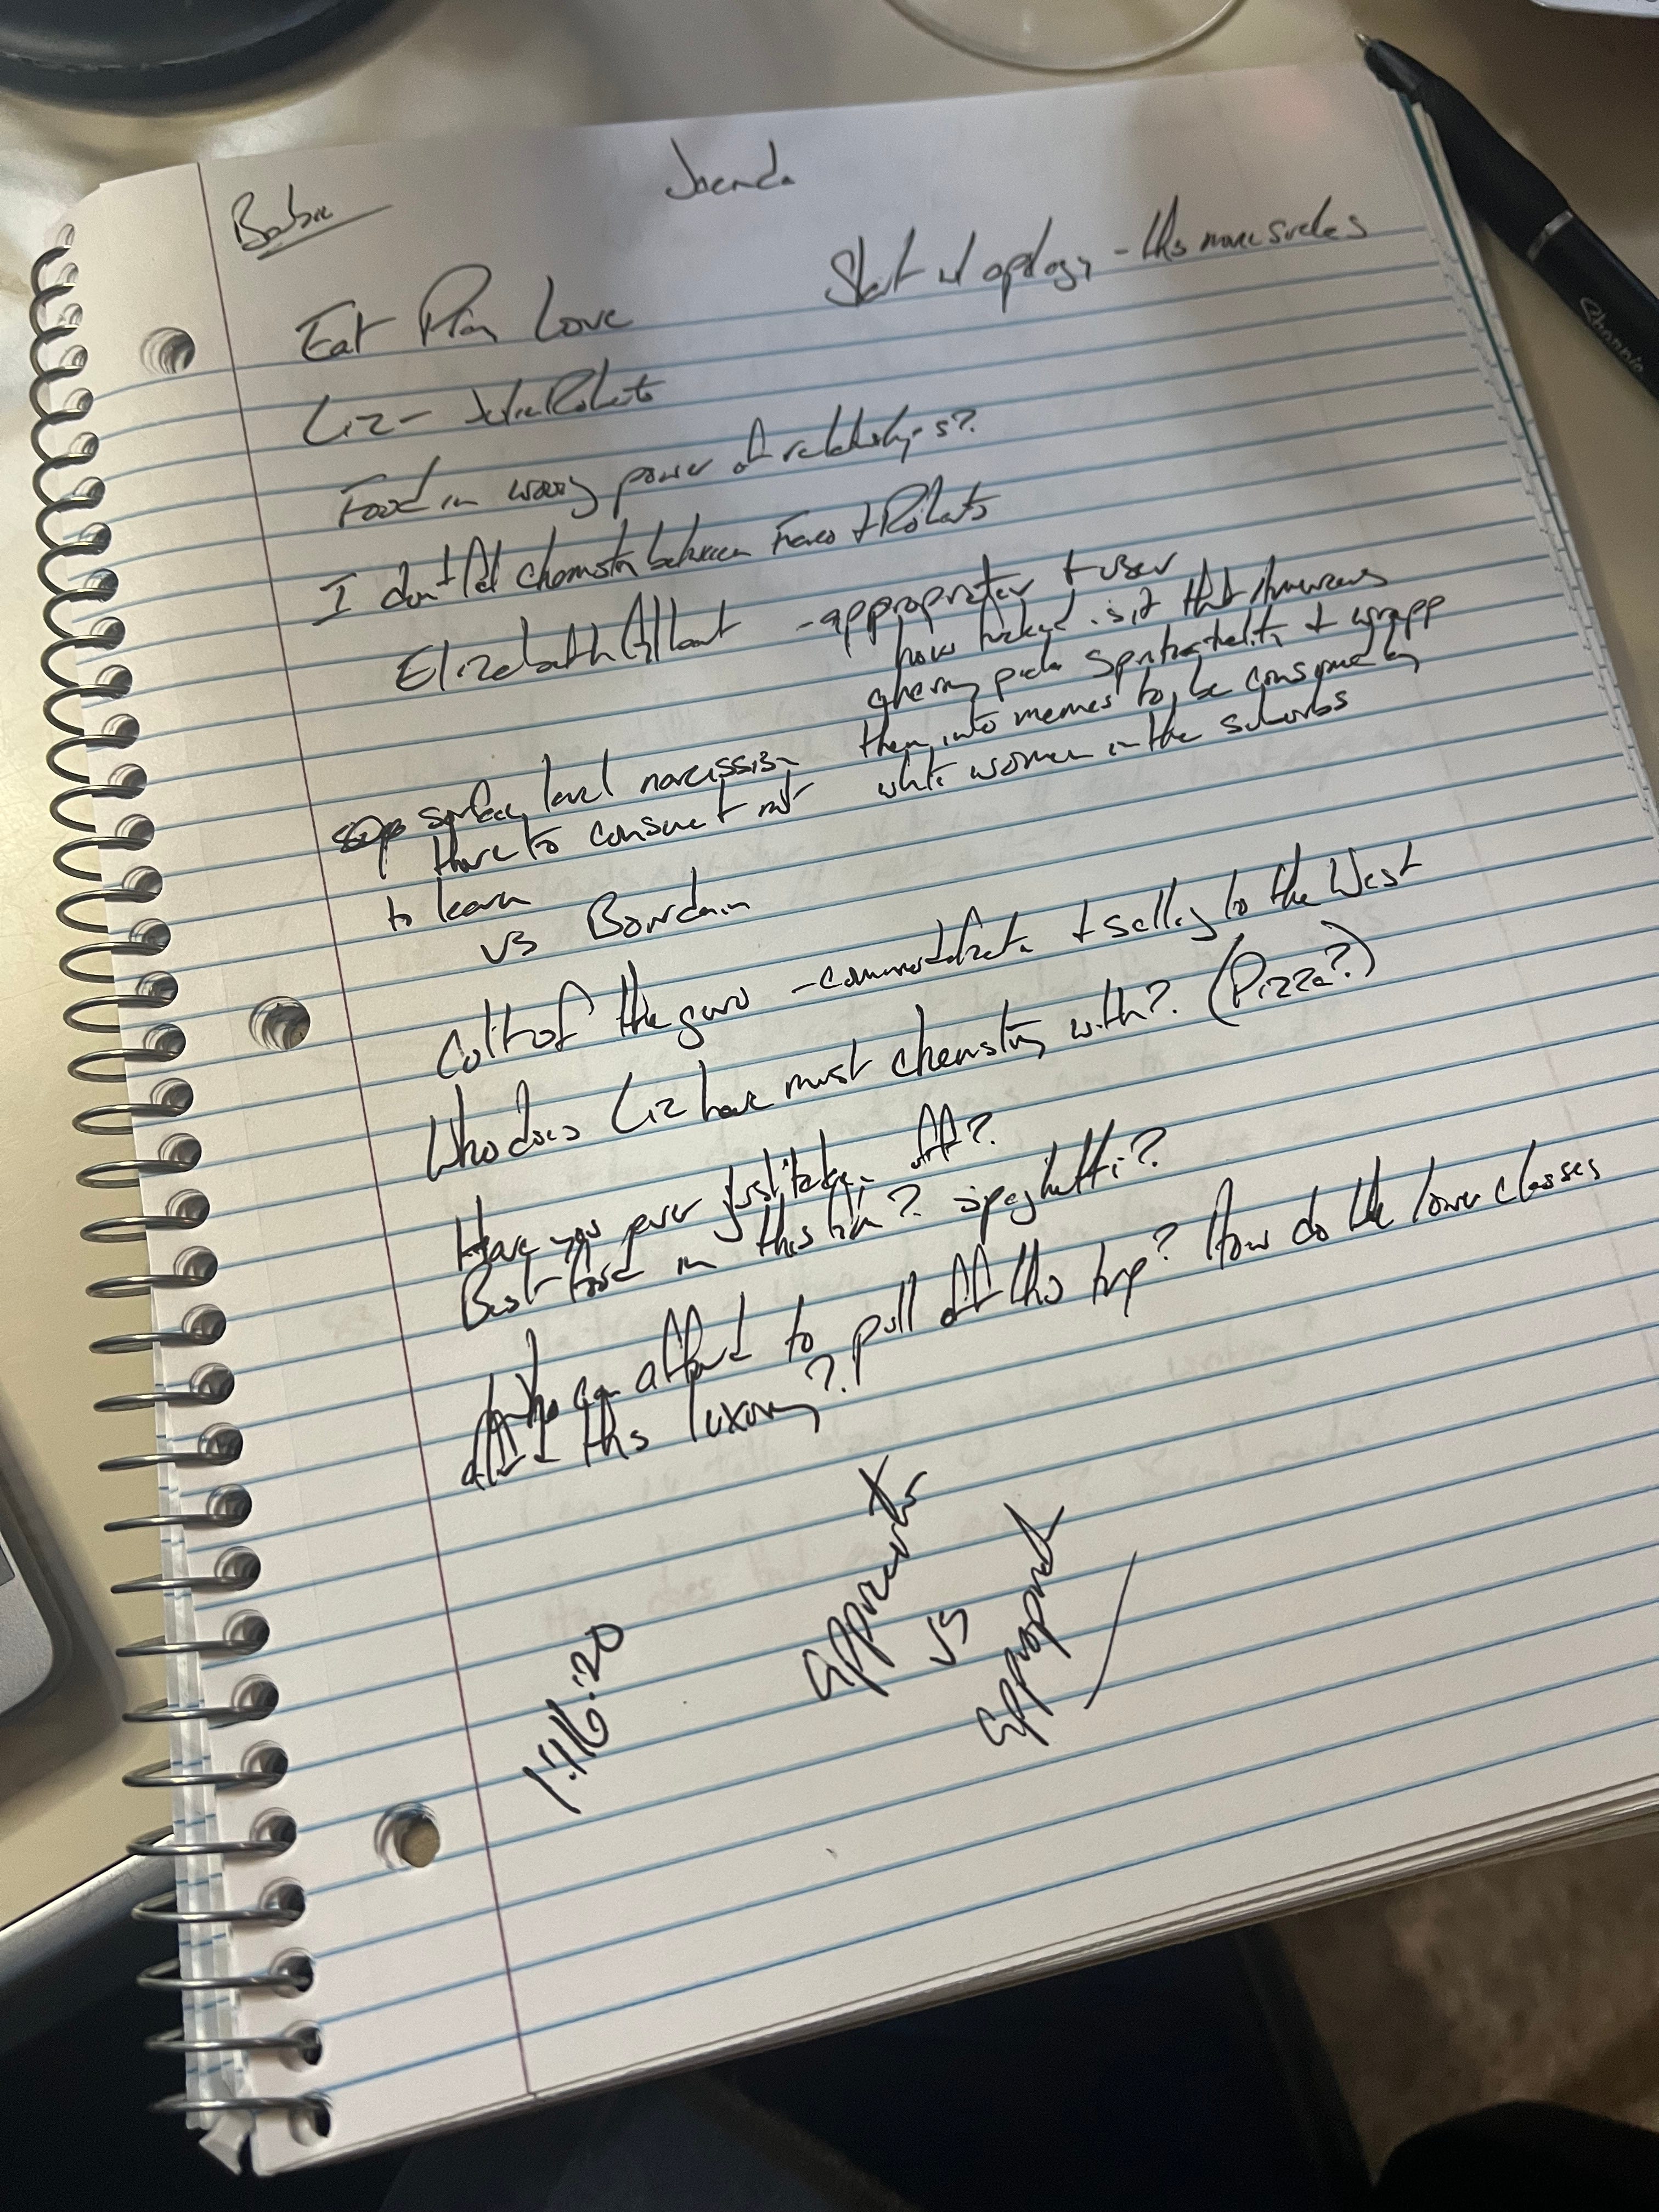 Barbie
Start w/ apology - this movie sucks
Eat Pray Love
Liz - Julia Roberts
Food in wooing power of relationships?
I don't feel chemistry between Franco + Roberts
Elizabeth Gilbert - appropriator + user
how fucked is it that Americans
spirituality + wrapp
them into memes to be consumed by
white women in the suburbs
surface level narcissism
there to consume + not
to learn
vs Bourdain
Cult of the guru - commodification + selling to the West
Who does Liz have most chemistry with? (Pizza?)
Have you ever just taken off?
Best food in this film? spaghetti?
who can afford to pull off this trip? How do the lower classes
afford this luxury?
1:16:20
appreciate
vs
appropriate